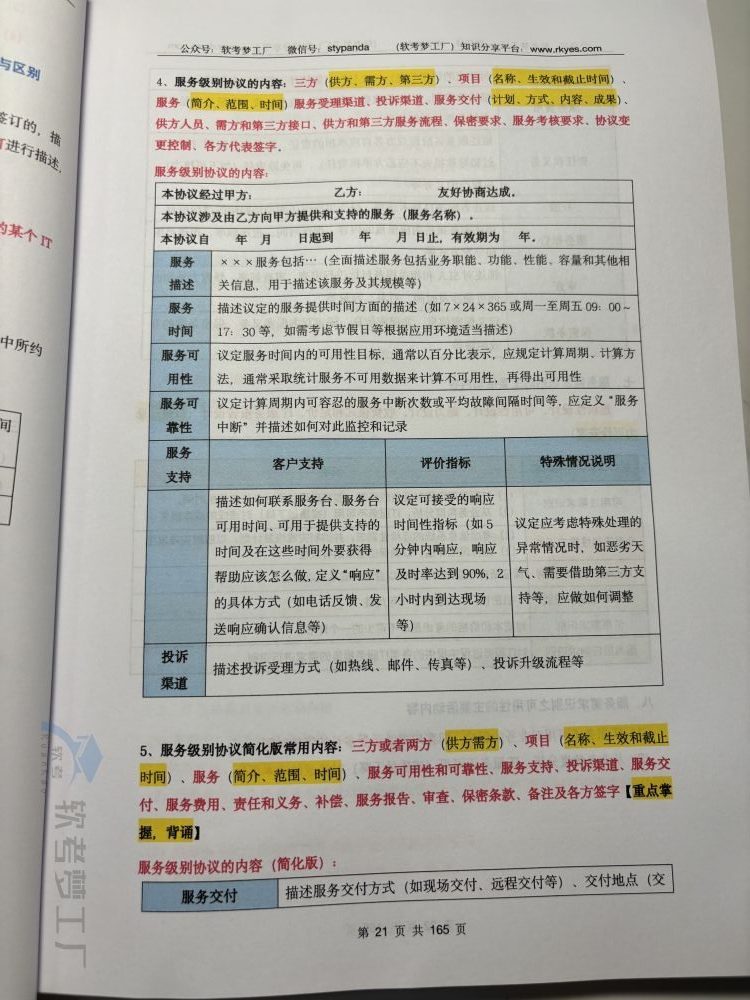 与区别
签订的，描
订进行描述，
的某个 IT
中所约
间
公众号：软考梦工厂 微信号：stypanda （软考梦工厂）知识分享平台：www.rkyes.com
4、服务级别协议的内容：三方（供方、需方、第三方）、项目（名称、生效和截止时间）、
服务（简介、范围、时间）服务受理渠道、投诉渠道、服务交付（计划、方式、内容、成果）、
供方人员、需方和第三方接口、供方和第三方服务流程、保密要求、服务考核要求、协议变
更控制、各方代表签字。
服务级别协议的内容：
本协议经过甲方： 乙方： 友好协商达成。
本协议涉及由乙方向甲方提供和支持的服务（服务名称）。
本协议自 年 月 日起到 年 月 日止，有效期为 年。
服务描述 ×××服务包括…（全面描述服务包括业务职能、功能、性能、容量和其他相
关信息，用于描述该服务及其规模等）
服务时间 描述议定的服务提供时间方面的描述（如 7×24×365 或周一至周五 09：00～
17：30 等，如需考虑节假日等根据应用环境适当描述）
服务可用性 议定服务时间内的可用性目标，通常以百分比表示，应规定计算周期、计算方
法，通常采取统计服务不可用数据来计算不可用性，再得出可用性
服务可靠性 议定计算周期内可容忍的服务中断次数或平均故障间隔时间等，应定义“服务
中断”并描述如何对此监控和记录
服务支持 客户支持 评价指标 特殊情况说明
描述如何联系服务台、服务台
可用时间、可用于提供支持的
时间及在这些时间外要获得
帮助应该怎么做，定义“响应”
的具体方式（如电话反馈、发
送响应确认信息等）
议定可接受的响应
时间性指标（如 5
分钟内响应，响应
及时率达到 90%，2
小时内到达现场
等）
议定应考虑特殊处理的
异常情况时，如恶劣天
气、需要借助第三方支
持等，应做如何调整
投诉渠道 描述投诉受理方式（如热线、邮件、传真等）、投诉升级流程等
5、服务级别协议简化版常用内容：三方或者两方（供方需方）、项目（名称、生效和截止
时间）、服务（简介、范围、时间）、服务可用性和可靠性、服务支持、投诉渠道、服务交
付、服务费用、责任和义务、补偿、服务报告、审查、保密条款、备注及各方签字【重点掌
握，背诵】
服务级别协议的内容（简化版）：
服务交付 描述服务交付方式（如现场交付、远程交付等）、交付地点（交
第 21 页 共 165 页
软考
软考梦工厂